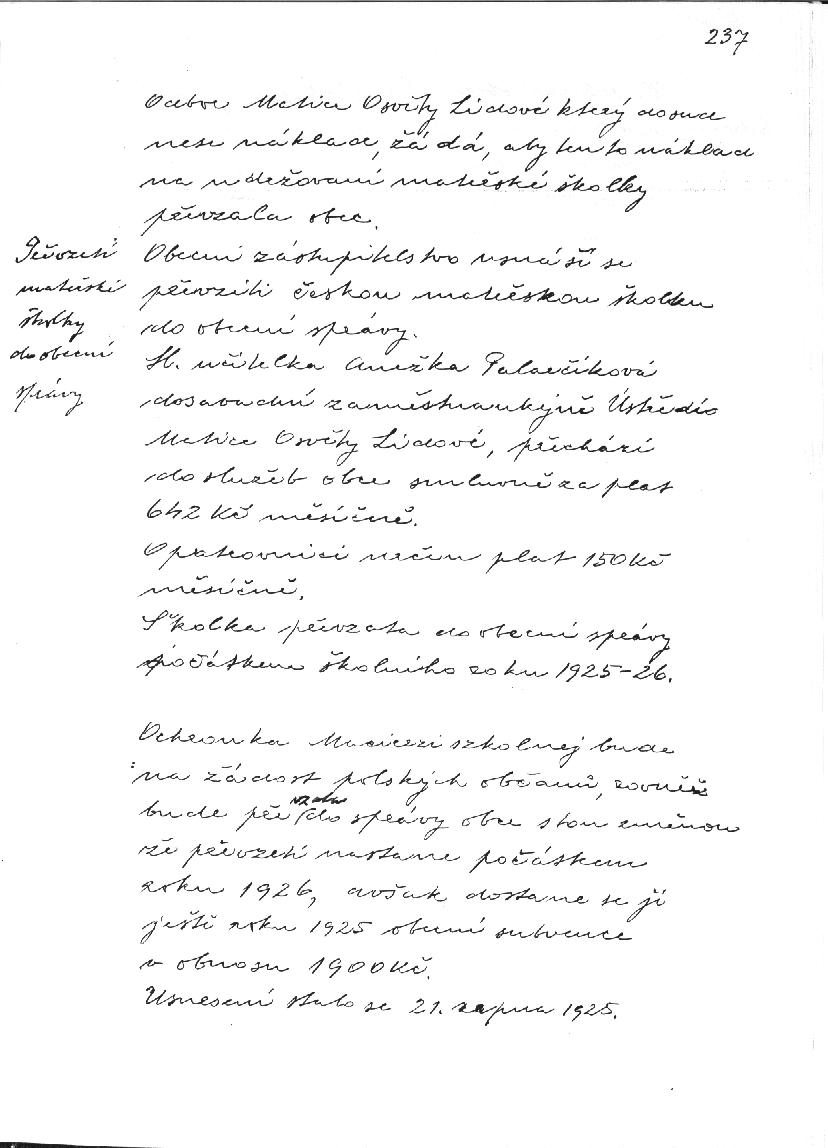 237
Odbor Matice Osvěty Lidové který dosud
nese náklad, žádá, aby tento náklad
na udržovaní mateřské školky
převzala obec.
Převzetí
mateřské
školky
do obecní
správy
Obecní zastupitelstvo usnáší se
převzíti českou mateřskou školku
do obecní správy.
Sl. učitelka Anežka Palarčíková
dosavadní zaměstnankyně Ústředí
Matice Osvěty Lidové, přechází
do služeb obce smluvně za plat
642 Kč měsíčně.
Opatrovnici určen plat 150 Kč
měsíčně.
Školka převzata do obecní správy
počátkem školního roku 1925-26.
Ochronka Macierzi szkolnej bude
na žádost polských občanů, rovněž
bude převzata do správy obce s tou změnou
že převzetí nastane počátkem
roku 1926, avšak dostane se jí
ještě roku 1925 obecní subvence
v obnosu 1900 Kč.
Usnesení stalo se 21. srpna 1925.